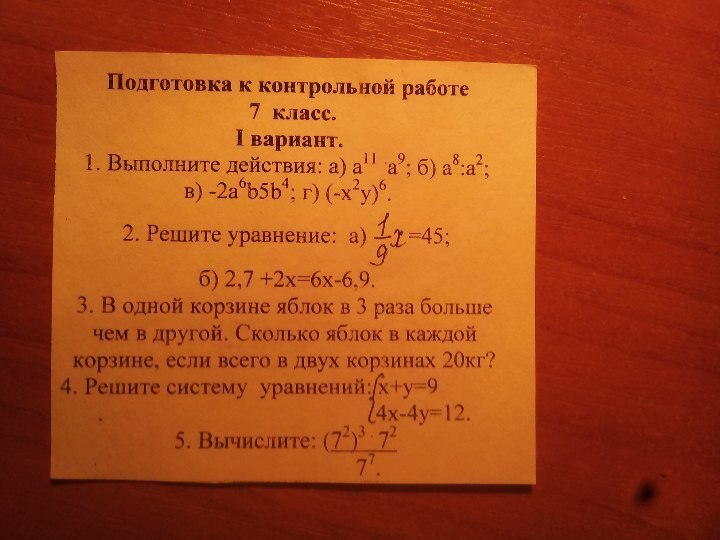 Подготовка к контрольной работе
7 класс.
I вариант.
1. Выполните действия: а) a¹¹ · a⁹; б) a⁸:a²;
в) -2a⁶b5b⁴; г) (-x²y)⁶.
2. Решите уравнение: а) 1/9 x =45;
б) 2,7 +2x=6x-6,9.
3. В одной корзине яблок в 3 раза больше
чем в другой. Сколько яблок в каждой
корзине, если всего в двух корзинах 20кг?
4. Решите систему уравнений:{x+y=9
{4x-4y=12.
5. Вычислите: (7²)³ · 7²
7⁷.